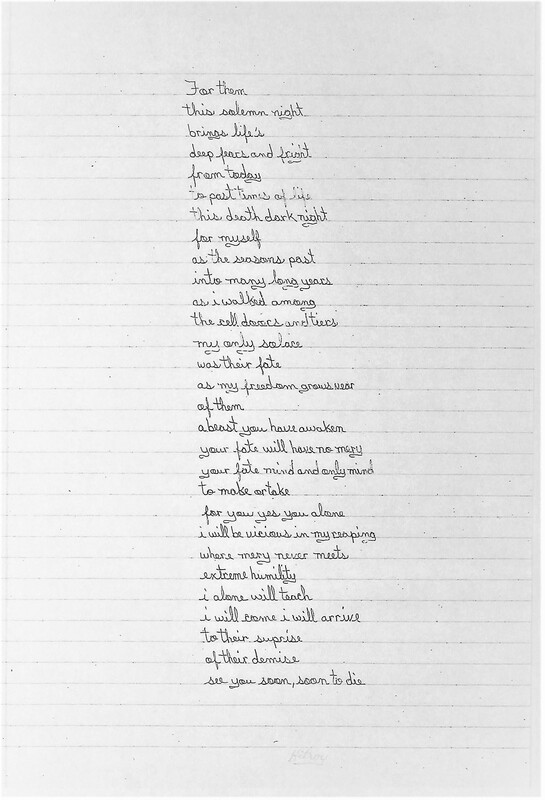 For them
this solemn night
brings life's
deep fears and fright
from today
to past times of life
this death dark night
for myself
as the seasons past
into many long years
as i walked among
the cell doors and tiers
my only solace
was their fate
as my freedom grows near
of them
a beast you have awaken
your fate will have no mery
your fate mind and only mind
to make or take
for you yes you alone
i will be vicious in my reaping
where mery never meets
extreme humility
i alone will teach
i will come i will arrive
to their suprise
of their demise
see you soon, soon to die